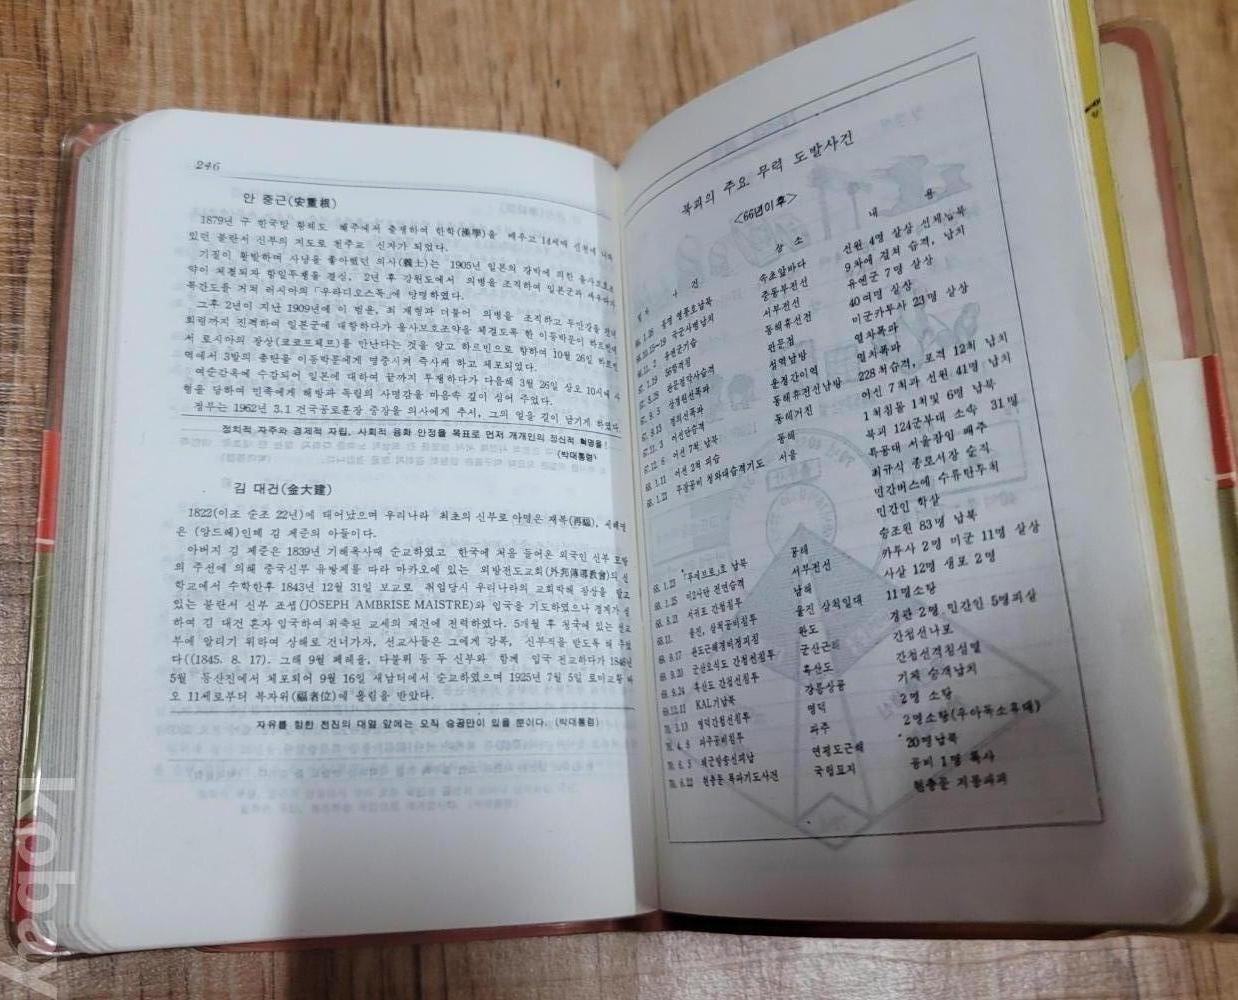 246
안 중근(安重根)
1879년 구 한국말 황해도 해주에서 출생하여 한학(漢學)을 배우고 14세때 신천에 나와
있던 불란서 신부의 지도로 천주교 신자가 되었다.
기질이 활발하며 사냥을 좋아했던 의사(義士)는 1905년 일본의 강박에 의한 을사보호조
약이 체결되자 항일투쟁을 결심, 2년 후 강원도에서 의병을 조직하여 일본군과 싸우다가
북간도를 거쳐 러시아의 「우라디오스톡」에 망명하였다.
그후 2년이 지난 1909년에 이 범윤, 최 재형과 더불어 의병을 조직하고 두만강을 건너
회령까지 진격하여 일본군에 대항하다가 을사보호조약을 체결토록 한 이등박문이 하르빈에
서 로시아의 장상(코코프체프)를 만난다는 것을 알고 하르빈으로 향하여 10월 26일 하르빈
역에서 3발의 총탄을 이등박문에게 명중시켜 즉사케 하고 체포되었다.
여순감옥에 수감되어 일본에 대하여 끝까지 투쟁하다가 다음해 3월 26일 상오 10시에 사
형을 당하여 민족에게 해방과 독립의 사명감을 마음속 깊이 심어 주었다.
정부는 1962년 3.1 건국공로훈장 중장을 의사에게 추서, 그의 얼을 길이 남기게 하였다.
정치적 자주와 경제적 자립, 사회적 융화 안정을 목표로 먼저 개개인의 정신적 혁명을!
(박대통령)
김 대건(金大建)
1822(이조 순조 22년)에 태어났으며 우리나라 최초의 신부로 아명은 재복(再福), 세례명
은 (앙드레)인데 김 제준의 아들이다.
아버지 김 제준은 1839년 기해옥사때 순교하였고 한국에 처음 들어온 외국인 신부 모방
의 주선에 의해 중국신부 유방제를 따라 마카오에 있는 외방전도교회(外邦傳導敎會)의 신
학교에서 수학한후 1843년 12월 31일 보교로 취임당시 우리나라의 교회박해 참상을 알고
있는 불란서 신부 조셉(JOSEPH AMBRISE MAISTRE)와 입국을 기도하였으나 경계가 심
하여 김 대건 혼자 입국하여 위축된 교세의 재건에 전력하였다. 5개월 후 청국에 있는 선교
부에 알리기 위하여 상해로 건너가자, 선교사들은 그에게 감복, 신부직을 받도록 해 주었
다((1845. 8. 17). 그해 9월 페레올, 다블뤼 등 두 신부와 함께 입국 전교하다가 1846년
5월 등산진에서 체포되어 9월 16일 새남터에서 순교하였으며 1925년 7월 5일 로마교황 비
오 11세로부터 복자위(福者位)에 올림을 받았다.
자유를 향한 전진의 대열 앞에는 오직 승공만이 있을 뿐이다. (박대통령)
북괴의 주요 무력 도발사건
<66년이후>
일시 사건 장소 내용
66. 1.26 동명 명풍호납북 속초앞바다 선원 4명 살상 선체납북
66.10.15~19 국군사병납치 중동부전선 9차에 걸쳐 습격, 납치
66.11. 2 유엔군기습 서부전선 유엔군 7명 살상
67. 1.19 56함격침 동해휴전선 40여명 살상
67. 8.28 판문점막사습격 판문점 미군카투사 23명 살상
67. 9. 5 경원선폭파 열차폭파
67. 9.13 경의선폭파 운정간이역 열차폭파
67.11. 3 어선단습격 동해휴전선남방 228회습격, 포격 12회 납치
67.12. 6 어선 7척 납북 동해거진 어선 7척과 선원 41명 납치
68. 1.11 어선 2척 피습 동해 1척침몰 1척및 6명 납북
68. 1.21 무장공비 청와대습격기도 서울 북괴 124군부대 소속 31명
특공대 서울잠입 패주
최규식 종로서장 순직
민간버스에 수류탄투척
민간인 학살
68. 1.23 「푸에브로」호 납북 동해 승조원 83명 납북
68. 4.25 미2사단 전면습격 서부전선 카투사 2명 미군 11명 살상
68. 8.21 서귀포 간첩침투 남해 사살 12명 생포 2명
68.11. 울진, 삼척공비침투 울진 삼척일대 11명소탕
69. 9.17 완도근해경비정피침 완도 경관 2명 민간인 5명피살
69. 9.20 군산오식도 간첩선침투 군산근해 간첩선나포
69. 9.24 흑산도 간첩선침투 흑산도 간첩선격침섬멸
69.12.11 KAL기납북 강릉상공 기체 승객납치
70. 3.13 영덕간첩선침투 영덕 2명 소탕
70. 4. 8 파주공비침투 파주 2명소탕(우아독소휴대)
70. 6. 5 해군방송선피납 연평도근해 20명납북
70. 6.22 현충문 폭파기도사건 국립묘지 공비 1명 폭사
현충문 지붕파괴
kpbay